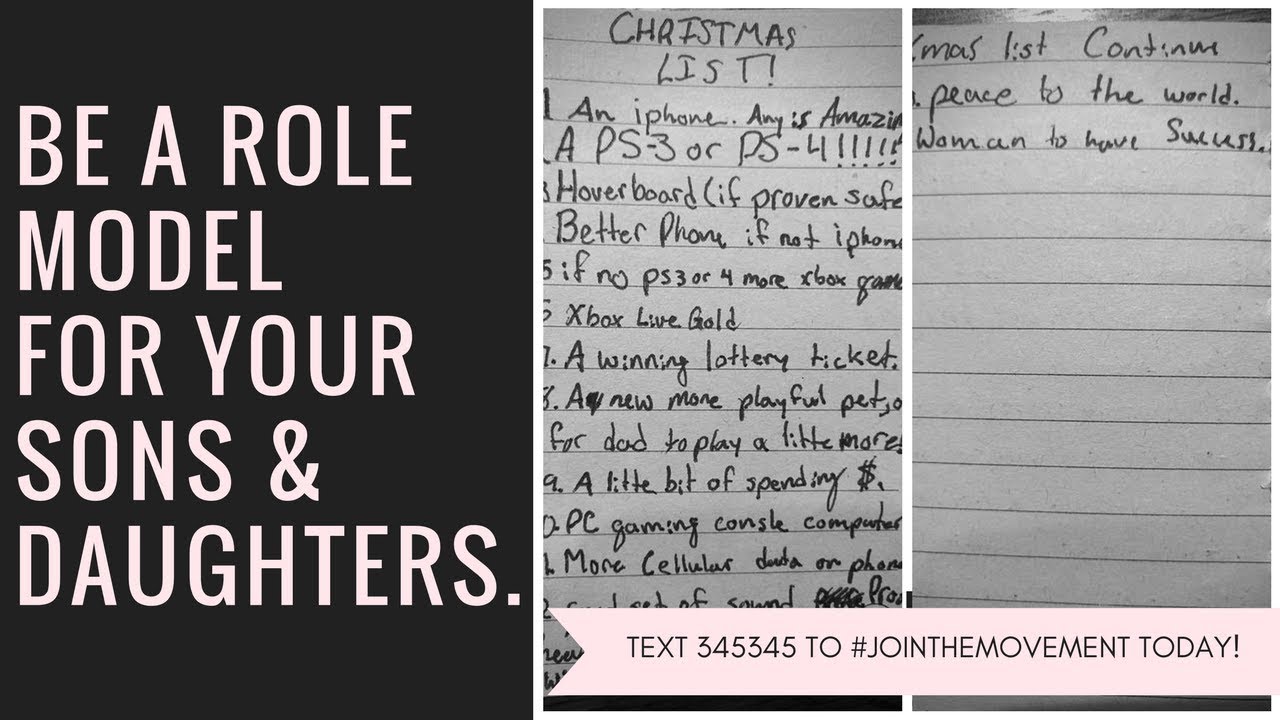 BE A ROLE
MODEL
FOR YOUR
SONS &
DAUGHTERS.
CHRISTMAS
LIST!
1 An iphone. Any is Amazin
A PS-3 or PS-4!!!!!
Hoverboard (if proven safe
Better Phone if not iphone
5 if no ps3 or 4 more xbox game
Xbox Live Gold
7. A winning lottery ticket.
8. A new more playful pet, o
for dad to play a litte more
9. A litte bit of spending $.
0. PC gaming consle computer
1. More Cellular data on phone
set of sound
mas list Continue
. peace to the world.
Woman to have Success.
TEXT 345345 TO #JOINTHEMOVEMENT TODAY!